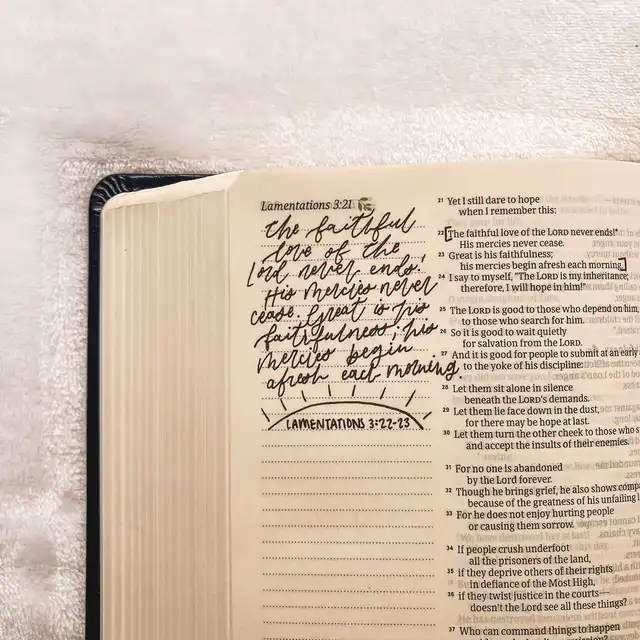 Lamentations 3:21
the faithful
love of the
Lord never ends!
His mercies never
cease. Great is his
faithfulness; his
mercies begin
afresh each morning.
LAMENTATIONS 3:22-23
21 Yet I still dare to hope
when I remember this:
22 [The faithful love of the LORD never ends!
His mercies never cease.
23 Great is his faithfulness;
his mercies begin afresh each morning.]
24 I say to myself, "The LORD is my inheritance;
therefore, I will hope in him!"
25 The LORD is good to those who depend on him,
to those who search for him.
26 So it is good to wait quietly
for salvation from the LORD.
27 And it is good for people to submit at an early
to the yoke of his discipline:
28 Let them sit alone in silence
beneath the LORD's demands.
29 Let them lie face down in the dust,
for there may be hope at last.
30 Let them turn the other cheek to those who
and accept the insults of their enemies.
31 For no one is abandoned
by the Lord forever.
32 Though he brings grief, he also shows
because of the greatness of his unfailing
33 For he does not enjoy hurting people
or causing them sorrow.
34 If people crush underfoot
all the prisoners of the land,
35 if they deprive others of their rights
in defiance of the Most High,
36 if they twist justice in the courts—
doesn't the Lord see all these things?
37 Who can command things to happen